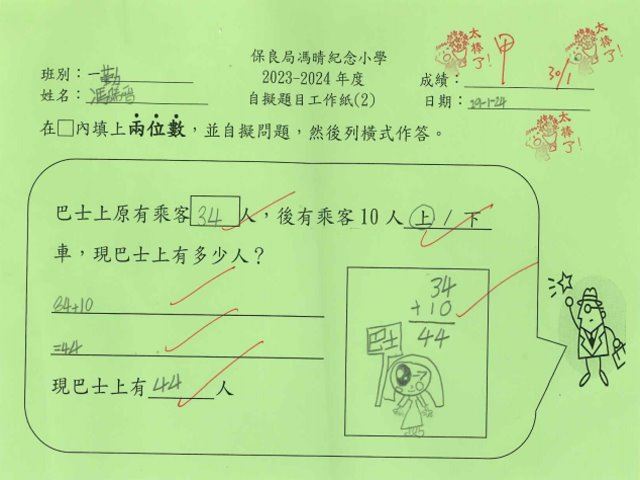 保良局馮晴紀念小學
2023-2024 年度
自擬題目工作紙(2)
班別：一勤
姓名：馮
成績：甲 30/1
日期：29-1-24
太棒了!
太棒了!
太棒了!
在□內填上兩位數，並自擬問題，然後列橫式作答。
巴士上原有乘客 34 人，後有乘客 10 人 上 / 下
車，現巴士上有多少人？
34+10
=44
現巴士上有 44 人
34
+10
44
巴士